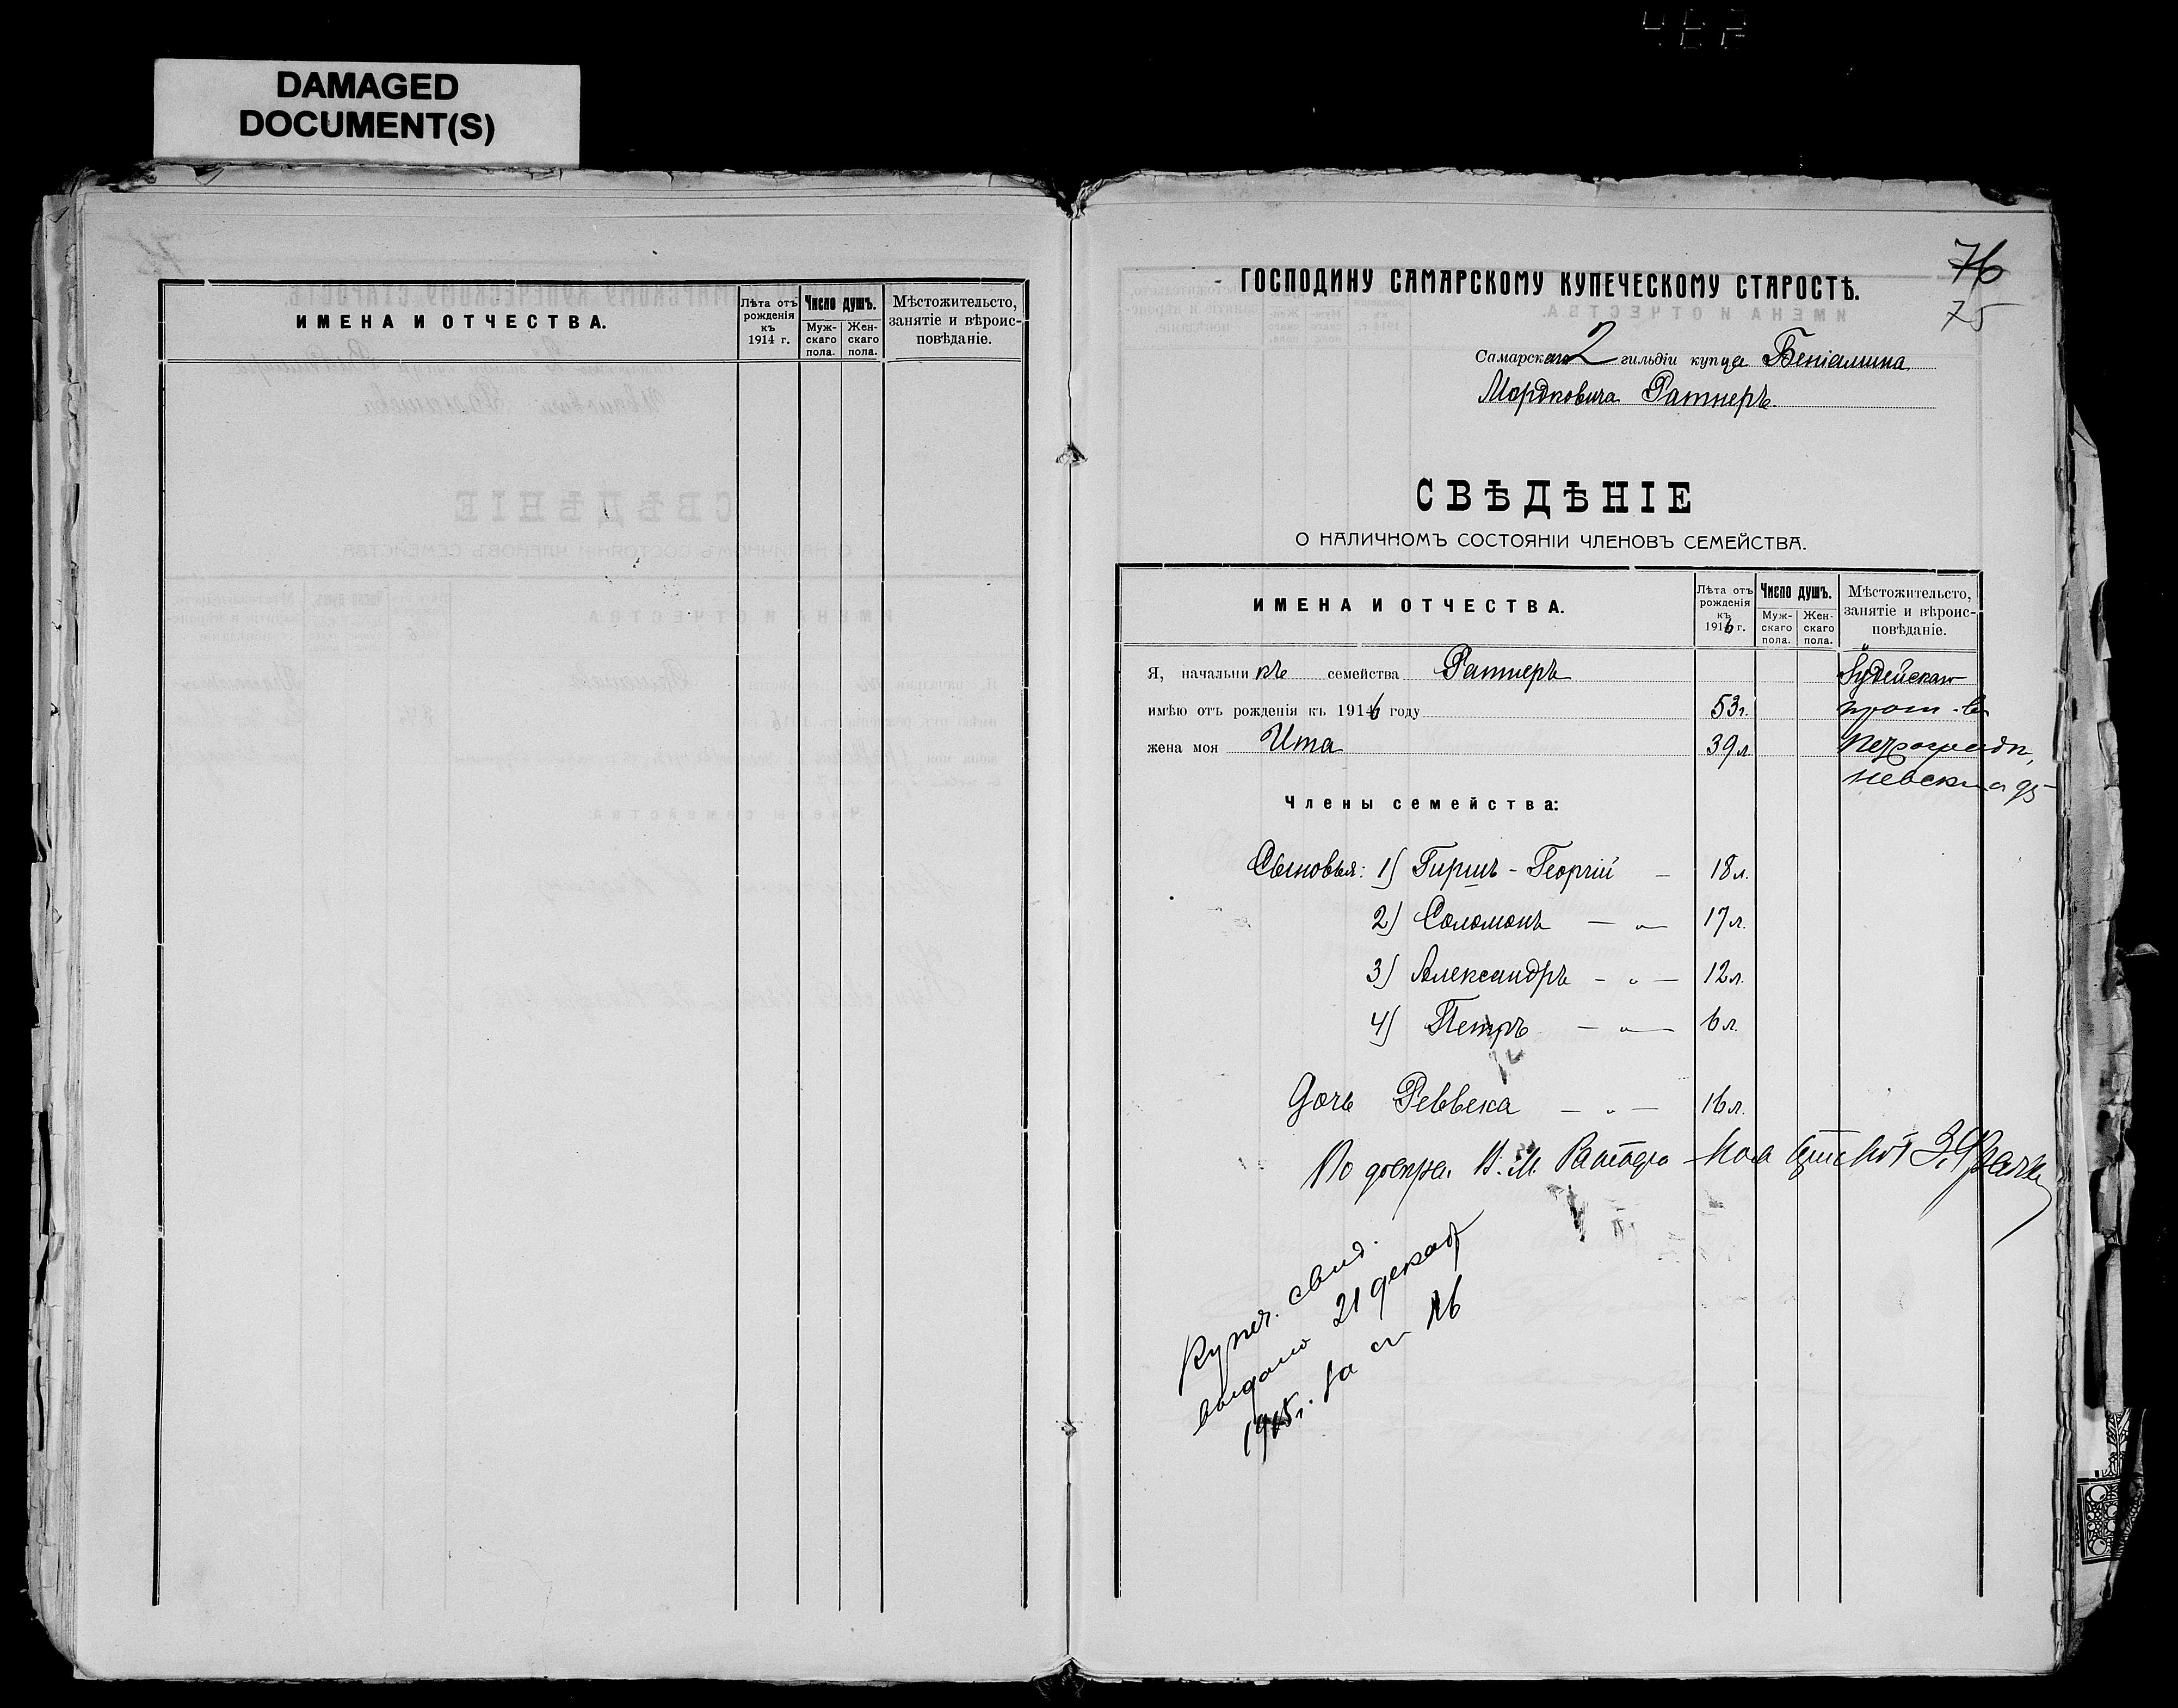 DAMAGED
DOCUMENT(S)
ИМЕНА И ОТЧЕСТВА.
Лѣта отъ рожденія къ 1914 г.
Число душъ.
Муж-скаго пола.
Жен-скаго пола.
Мѣстожительсто, занятіе и вѣроис-повѣданіе.
76
75
ГОСПОДИНУ САМАРСКОМУ КУПЕЧЕСКОМУ СТАРОСТѢ.
Самарскаго 2 гильдіи купца Беніамина
Мордковича Ратнеръ
СВѢДѢНІЕ
О НАЛИЧНОМЪ СОСТОЯНІИ ЧЛЕНОВЪ СЕМЕЙСТВА.
ИМЕНА И ОТЧЕСТВА.
Лѣта отъ рожденія къ 1916 г.
Число душъ.
Муж-скаго пола.
Жен-скаго пола.
Мѣстожительсто, занятіе и вѣроис-повѣданіе.
Я, начальникъ семейства Ратнеръ Іудейскаго
имѣю отъ рожденія къ 1916 году 53 г.
жена моя Ита 39 л. Петроградъ,
Члены семейства:
Сыновья: 1) Гиршъ - Георгій — 18 л.
2) Соломонъ — " — 17 л.
3) Александръ — " — 12 л.
4) Петръ — " — 6 л.
Дочь Реввека — " — 16 л.
По довѣр. В. М.
Купеч. свид.
выдано 21 декаб
1915 г. за № 16